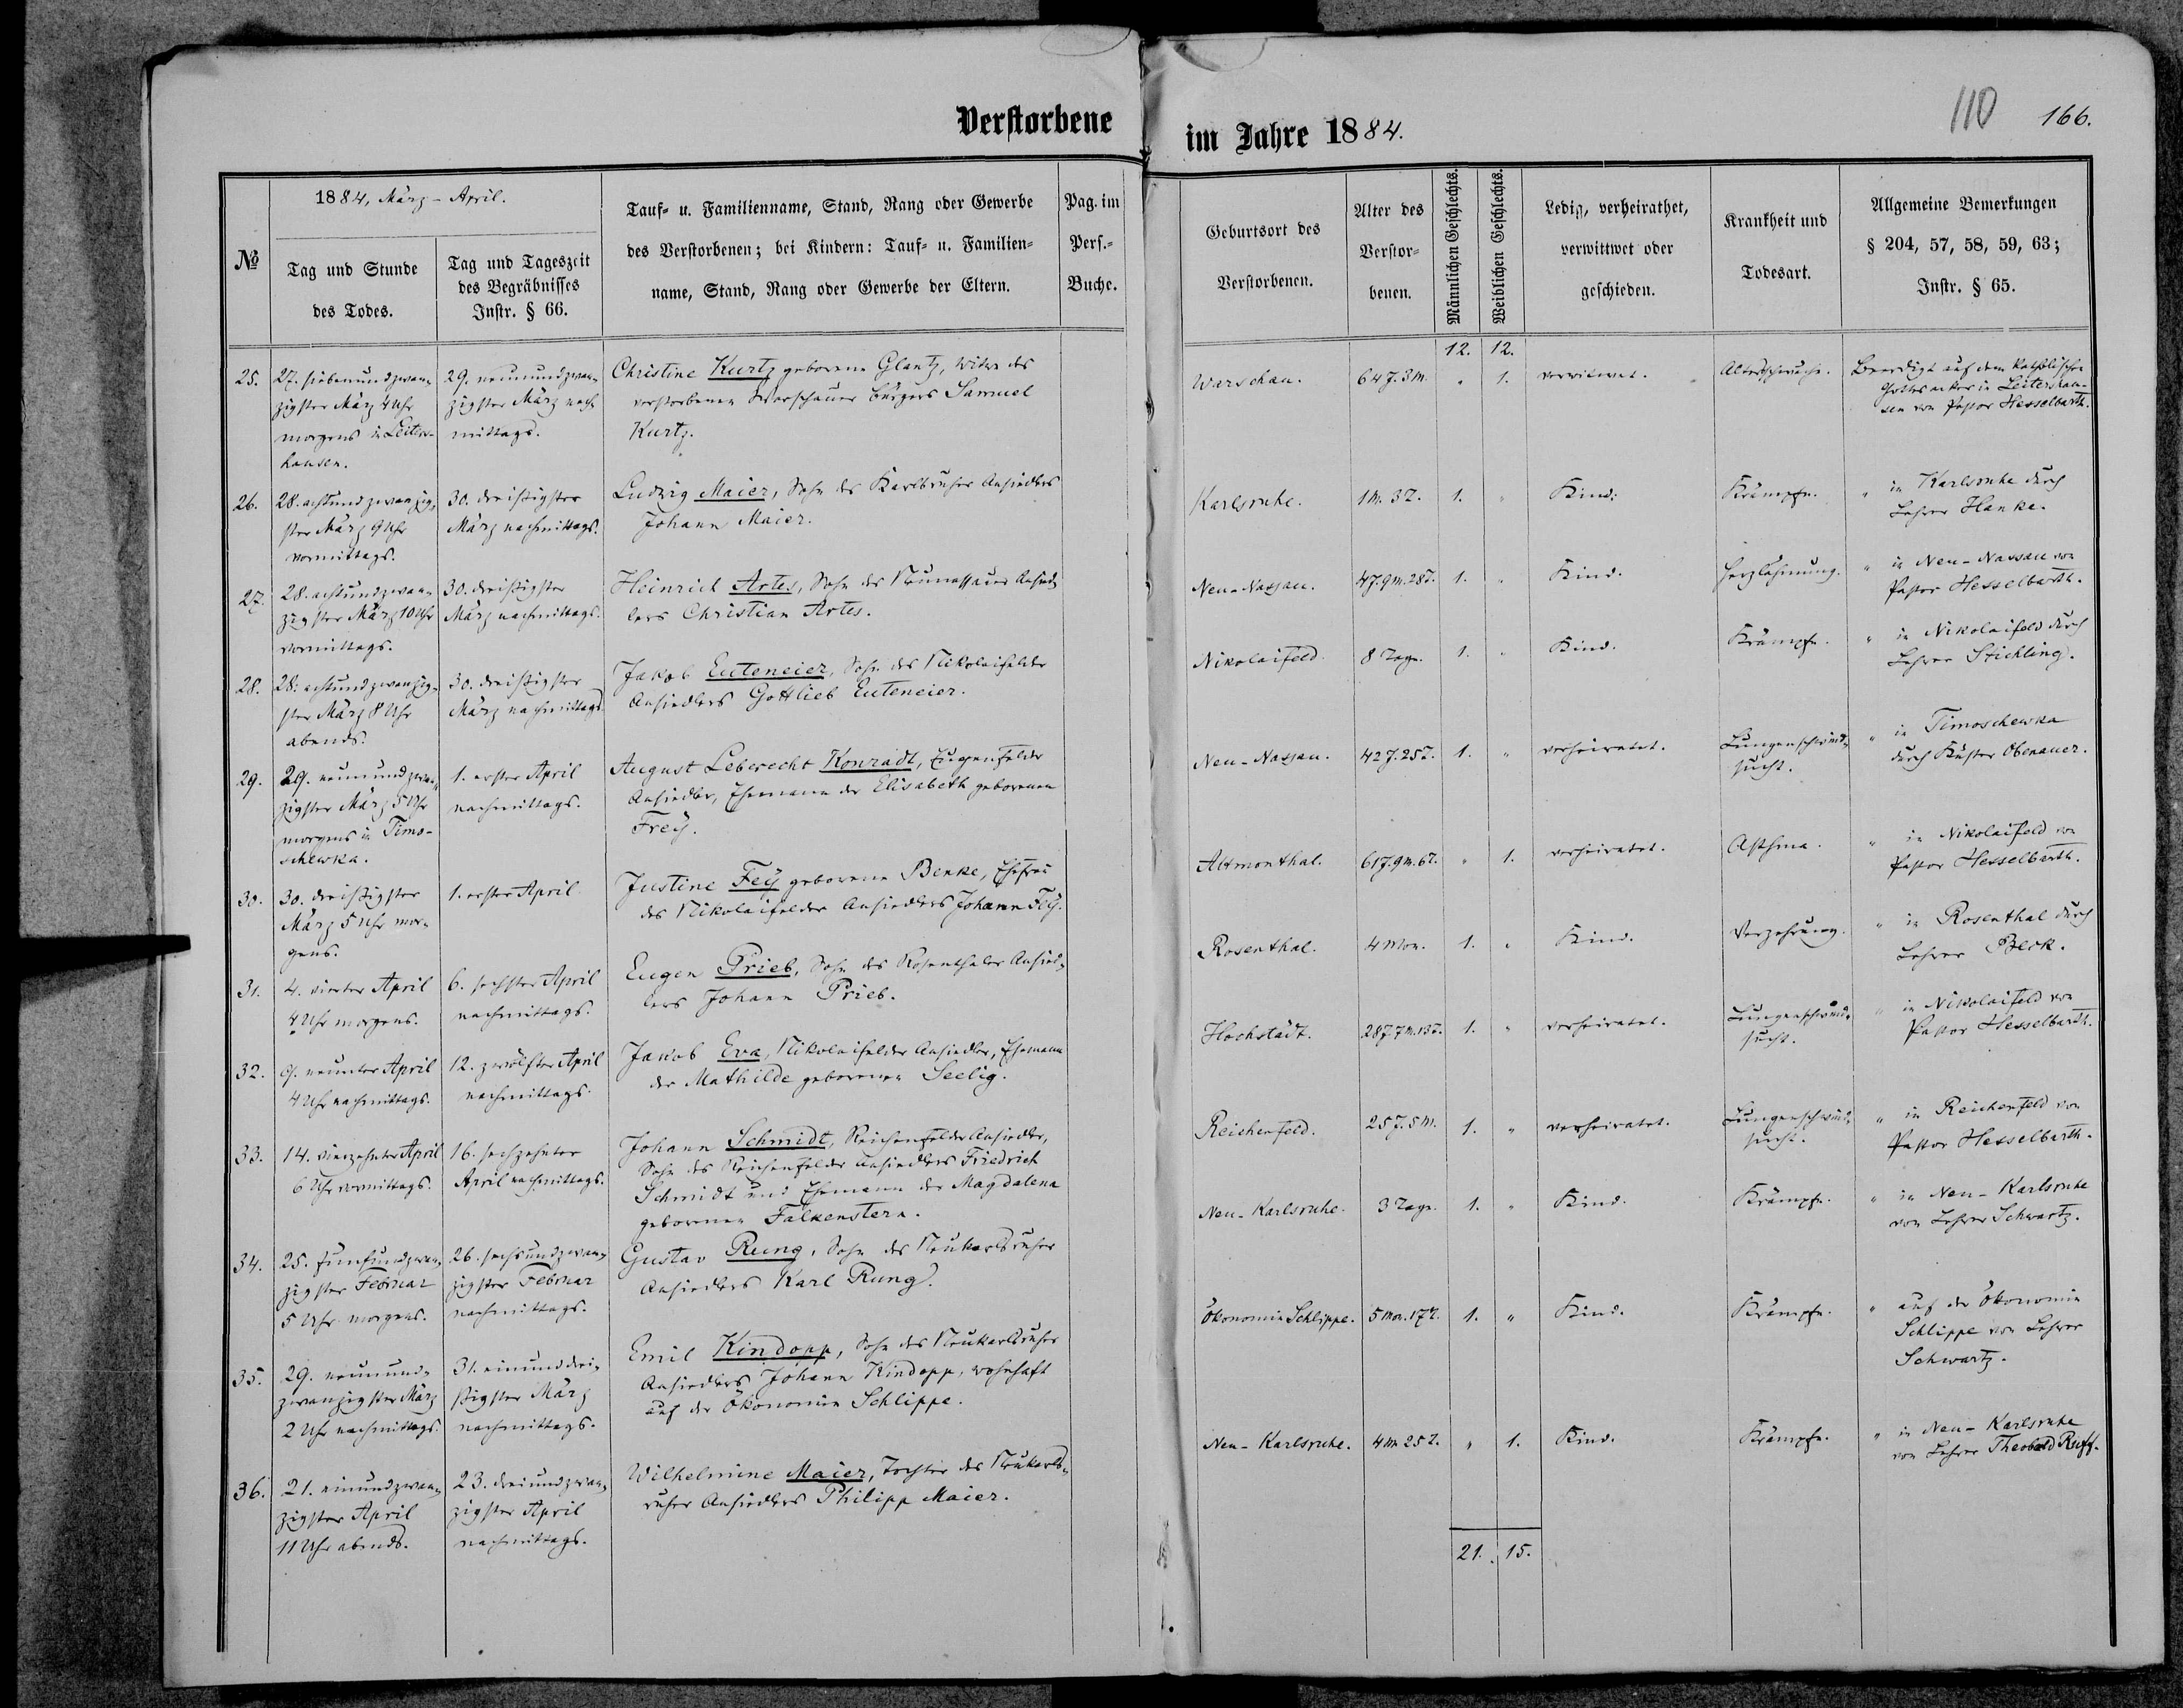 Verstorbene
im Jahre 1884.
110
166.
№
1884, März - April.
Tag und Stunde
des Todes.
Tag und Tageszeit
des Begräbnisses
Instr. § 66.
Tauf- u. Familienname, Stand, Rang oder Gewerbe
des Verstorbenen; bei Kindern: Tauf- u. Familien-
name, Stand, Rang oder Gewerbe der Eltern.
Pag. im
Pers.-
Buche.
Geburtsort des
Verstorbenen.
Alter des
Verstor-
benen.
Männlichen Geschlechts.
Weiblichen Geschlechts.
Ledig, verheirathet,
verwittwet oder
geschieden.
Krankheit und
Todesart.
Allgemeine Bemerkungen
§ 204, 57, 58, 59, 63;
Instr. § 65.
12. 12.
25.
27. siebenundzwan-
zigster März 4 Uhr
morgens in Leiters-
hausen.
29. neunundzwan-
zigster März nach-
mittags.
Christine Kurtz geborene Glantz, Witwe des
verstorbenen Warschauer Bürgers Samuel
Kurtz.
Warschau.
64 J. 3 M.
" 1.
verwitwet.
Altersschwäche.
Beerdigt auf dem katholischen
Gottesacker in Leitershau-
sen von Pastor Hesselbarth.
26.
28. achtundzwanzig-
ster März 9 Uhr
vormittags.
30. dreißigster
März nachmittags.
Ludwig Maier, Sohn des Karlsruher Ansiedlers
Johann Maier.
Karlsruhe.
1 M. 3 T.
1. "
Kind.
Krämpfe.
" in Karlsruhe durch
Lehrer Hanke.
27.
28. achtundzwan-
zigster März 10 Uhr
vormittags.
30. dreißigster
März nachmittags.
Heinrich Artes, Sohn des Neunassauer Ansied-
lers Christian Artes.
Neu-Nassau.
4 J. 9 M. 28 T.
1. "
Kind.
Herzlähmung.
" in Neu-Nassau von
Pastor Hesselbarth.
28.
28. achtundzwanzig-
ster März 8 Uhr
abends.
30. dreißigster
März nachmittags
Jakob Euteneier, Sohn des Nikolaifelder
Ansiedlers Gottlieb Euteneier.
Nikolaifeld.
8 Tage.
1. "
Kind.
Krämpfe.
" in Nikolaifeld durch
Lehrer Stichling.
29.
29. neunundzwan-
zigster März 5 Uhr
morgens in Timo-
schewka.
1. erster April
nachmittags.
August Leberecht Konradt, Eugenfelder
Ansiedler, Ehemann der Elisabeth geborenen
Frey.
Neu-Nassau.
42 J. 25 T.
1. "
verheiratet.
Lungenschwind-
sucht.
" in Timoschewka
durch Küster Obenauer.
30.
30. dreißigster
März 5 Uhr mor-
gens.
1. erster April
Justine Fey geborene Benke, Ehefrau
des Nikolaifelder Ansiedlers Johann Fey.
Altmonthal.
61 J. 9 M. 6 T.
" 1.
verheiratet.
Asthma.
" in Nikolaifeld von
Pastor Hesselbarth.
31.
4. vierter April
4 Uhr morgens.
6. sechster April
nachmittags.
Eugen Prieb, Sohn des Rosenthaler Ansied-
lers Johann Prieb.
Rosenthal.
4 Mon.
1. "
Kind.
Verzehrung.
" in Rosenthal durch
Lehrer Beck.
32.
9. neunter April
4 Uhr nachmittags.
12. zwölfter April
nachmittags.
Jakob Eva, Nikolaifelder Ansiedler, Ehemann
der Mathilde geborenen Seelig.
Hochstädt.
28 J. 7 M. 13 T.
1. "
verheiratet.
Lungenschwind-
sucht.
" in Nikolaifeld von
Pastor Hesselbarth.
33.
14. vierzehnter April
6 Uhr vormittags.
16. sechzehnter
April nachmittags.
Johann Schmidt, Reichenfelder Ansiedler,
Sohn des Reichenfelder Ansiedlers Friedrich
Schmidt und Ehemann der Magdalena
geborenen Falkenstern.
Reichenfeld.
25 J. 5 M.
1. "
verheiratet.
Lungenschwind-
sucht.
" in Reichenfeld von
Pastor Hesselbarth.
34.
25. fünfundzwan-
zigster Februar
5 Uhr morgens.
26. sechsundzwan-
zigster Februar
nachmittags.
Gustav Rung, Sohn des Neukarlsruher
Ansiedlers Karl Rung.
Neu-Karlsruhe.
3 Tage.
1. "
Kind.
Krämpfe.
" in Neu-Karlsruhe
von Lehrer Schwartz.
35.
29. neunund-
zwanzigster März
2 Uhr nachmittags.
31. einunddrei-
ßigster März
nachmittags.
Emil Kindopp, Sohn des Neukarlsruher
Ansiedlers Johann Kindopp, wohnhaft
auf der Ökonomie Schlippe.
Ökonomie Schlippe.
5 Mon. 17 T.
1. "
Kind.
Krämpfe.
" auf der Ökonomie
Schlippe von Lehrer
Schwartz.
36.
21. einundzwan-
zigster April
11 Uhr abends.
23. dreiundzwan-
zigster April
nachmittags.
Wilhelmine Maier, Tochter des Neukarls-
ruher Ansiedlers Philipp Maier.
Neu-Karlsruhe.
4 M. 25 T.
" 1.
Kind.
Krämpfe.
" in Neu-Karlsruhe
von Lehrer Theobald Ruff.
21. 15.